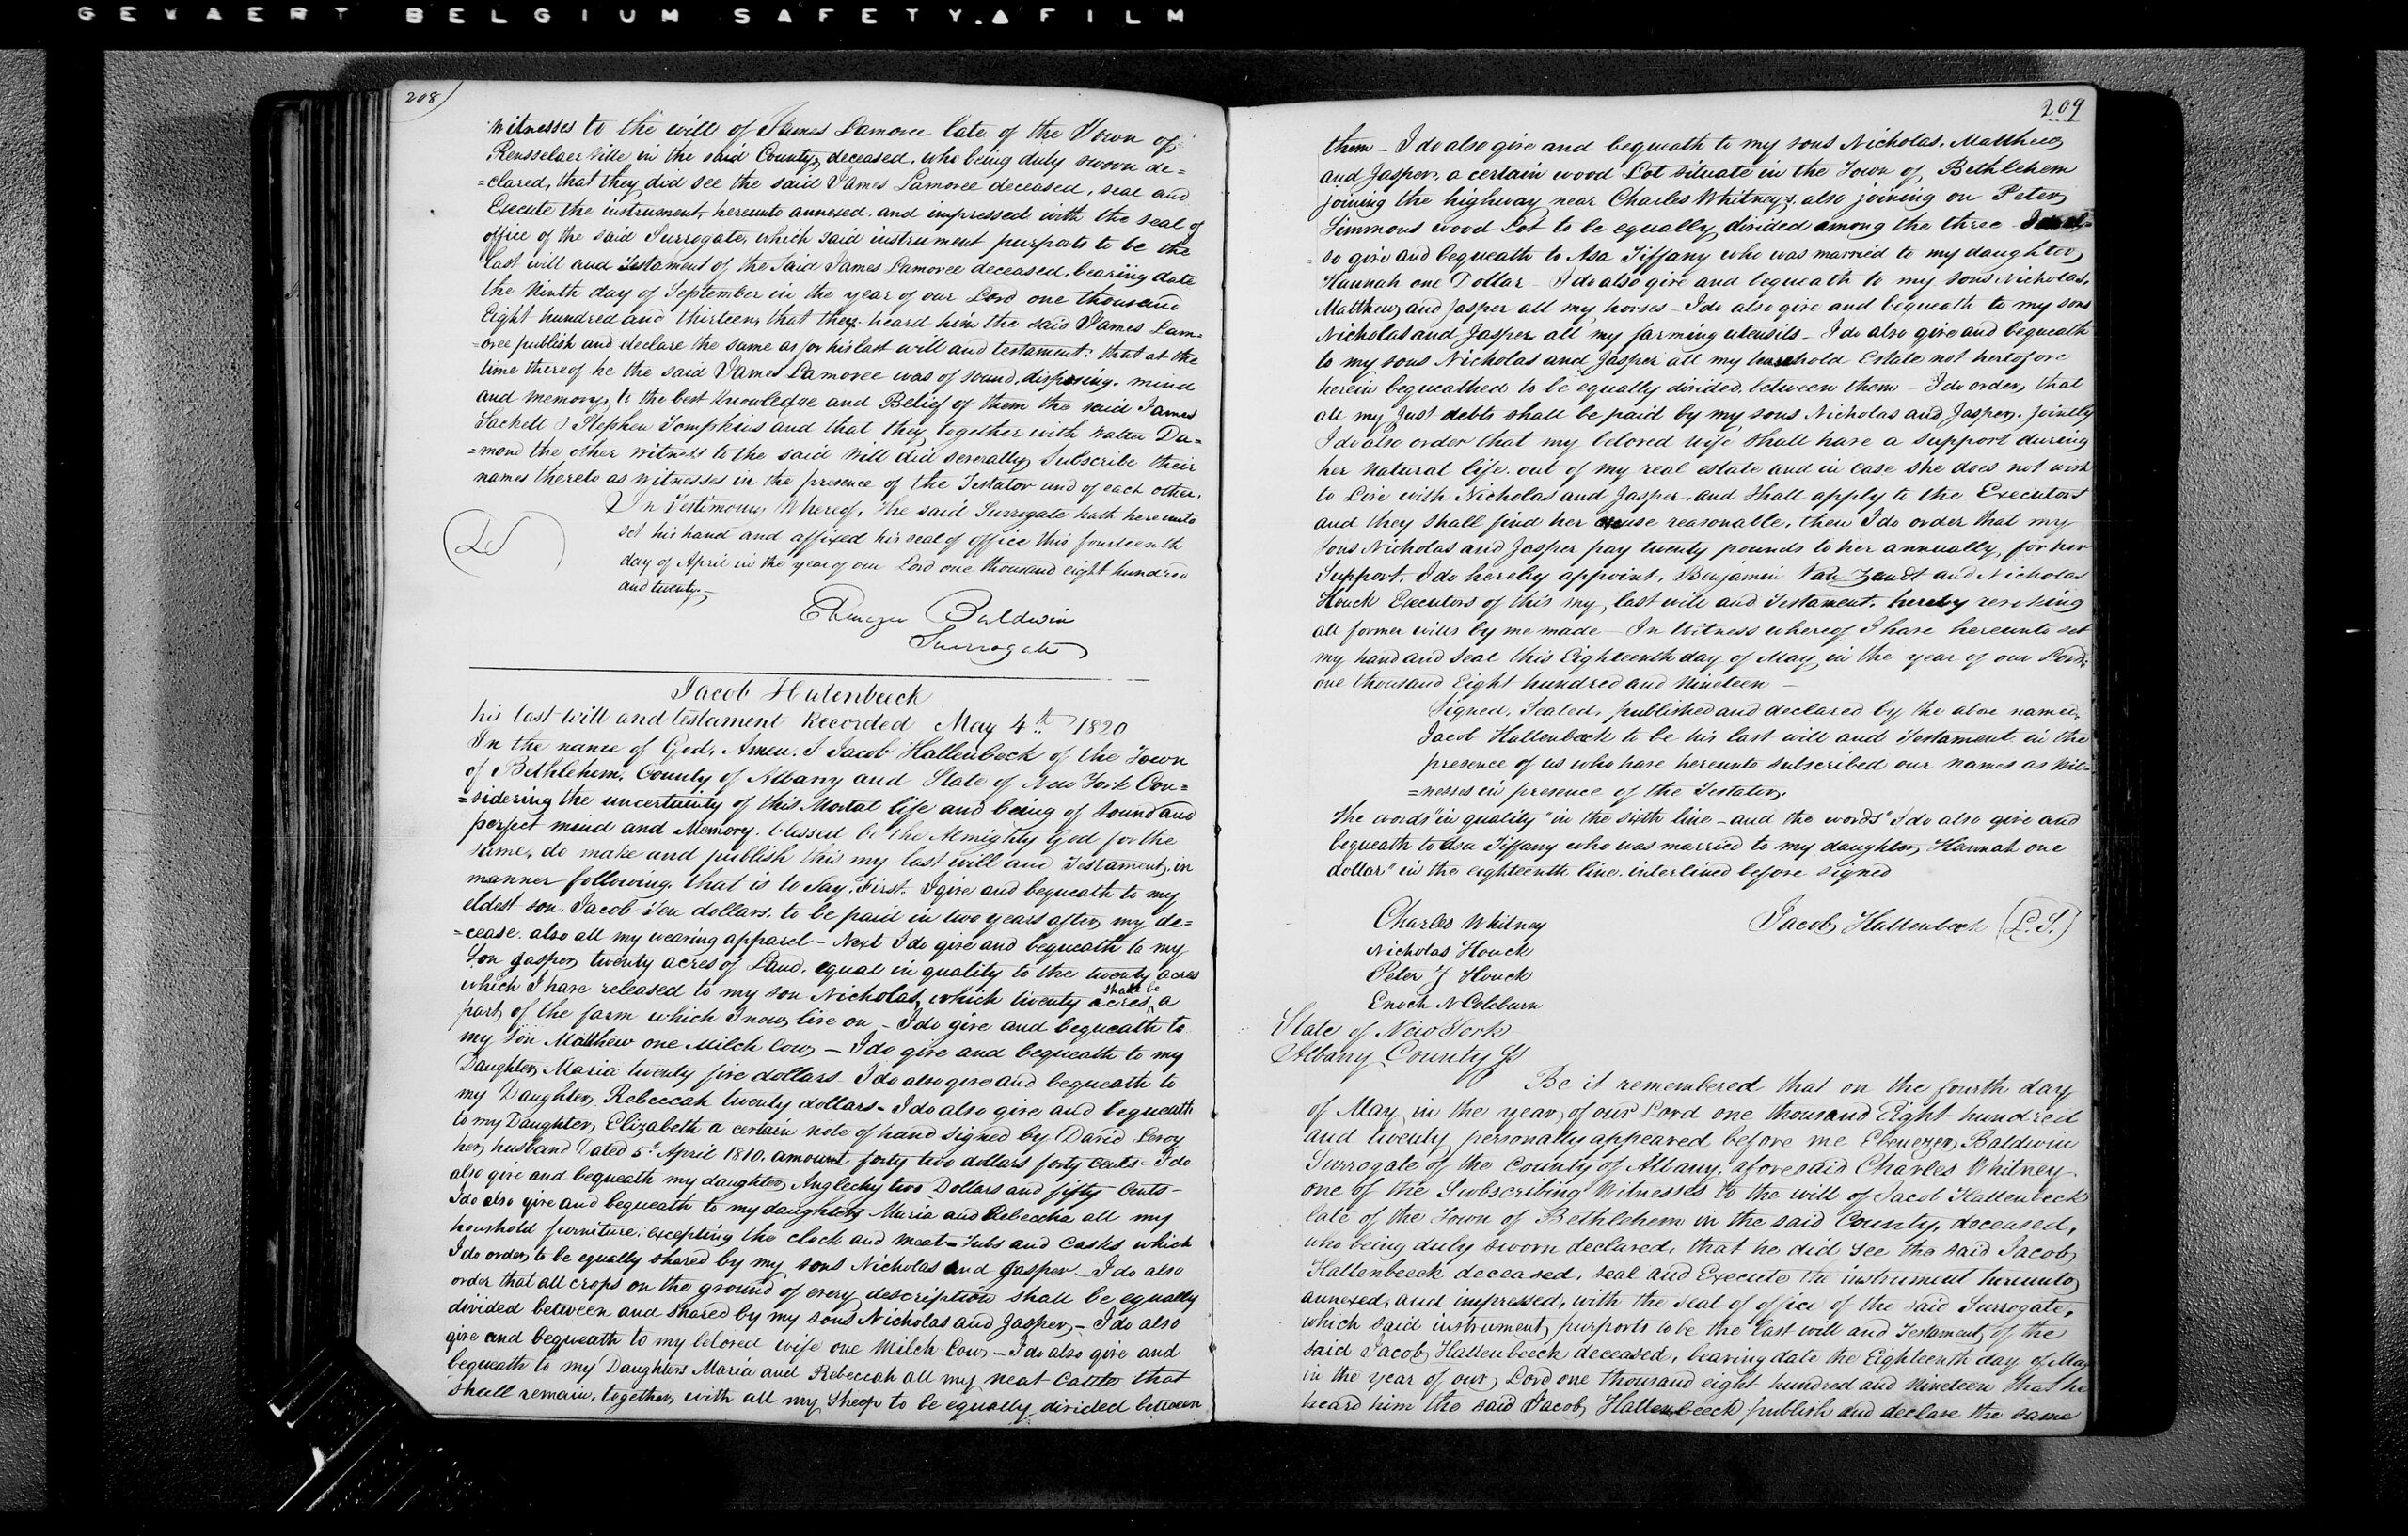 GEVAERT BELGIUM SAFETY.▲FILM
208
Witnesses to the will of James Lamoree late of the Town of
Rensselaerville in the said County, deceased, who being duly sworn de=
=clared, that they did see the said James Lamoree deceased, seal and
Execute the instrument, hereunto annexed, and impressed with the seal of
office of the said Surrogate, which said instrument purports to be the
last will and Testament of the said James Lamoree deceased, bearing date
the Ninth day of September in the year of our Lord one thousand
Eight hundred and thirteen, that they heard him the said James Lam=
=oree publish and declare the same as for his last will and testament: that at the
time thereof he the said James Lamoree was of sound, disposing, mind
and memory, to the best knowledge and Belief of them the said James
Sackett & Stephen Tompkins and that they together with Da=
=mond the other Witness to the said Will did severally Subscribe their
names thereto as Witnesses in the presence of the Testator and of each other.
In Testimony Whereof, the said Surrogate hath hereunto
set his hand and affixed his seal of office this fourteenth
day of April in the year of our Lord one thousand eight hundred
and twenty.—
LS
Ebenezer Baldwin
Surrogate
Jacob Halenbeeck
his last will and testament Recorded May 4th 1820
In the name of God, Amen. I Jacob Hallenbeck of the Town
of Bethlehem, County of Albany and State of New York Con=
=sidering the uncertainty of this Mortal life and being of sound and
perfect mind and Memory, blessed be the Almighty God for the
same, do make and publish this my last will and Testament, in
manner following, that is to Say, First. I give and bequeath to my
eldest son Jacob Ten dollars, to be paid in two years after my de=
=cease. also all my wearing apparel — Next I do give and bequeath to my
Son Jasper, twenty acres of Land, equal in quality to the twenty acres
which I have released to my son Nicholas, which twenty acres shall be a
part of the farm which I now live on — I do give and bequeath to
my Son Matthew one Milch Cow — I do give and bequeath to my
Daughter, Maria twenty five dollars — I do also give and bequeath to
my Daughter Rebeccah twenty dollars — I do also give and bequeath
to my Daughter, Elizabeth a certain note of hand signed by David Leroy
her husband Dated 5th April 1810. amount forty two dollars forty cents — I do
also give and bequeath my daughter, Anglechy two Dollars and fifty Cents —
I do also give and bequeath to my daughters Maria and Rebeccha all my
houshold furniture, excepting the clock and meat-Tubs and Casks which
I do order, to be equally shared by my sons Nicholas and Jasper — I do also
order that all crops on the ground of every description shall be equally
divided between and shared by my sons Nicholas and Jasper, — I do also
give and bequeath to my beloved wife one Milch Cow — I do also give and
bequeath to my Daughters Maria and Rebeccah all my neat Cattle that
shall remain, together, with all my Sheep to be equally divided between
209
them — I do also give and bequeath to my sons Nicholas, Matthew
and Jasper, a certain wood Lot situate in the Town of Bethlehem
joining the highway near Charles Whitney's, also joining on Peter
Simmons wood Lot to be equally divided among the three — I do al=
=so give and bequeath to Asa Tiffany who was married to my daughter,
Hannah one Dollar — I do also give and bequeath to my sons Nicholas,
Matthew, and Jasper all my horses — I do also give and bequeath to my sons
Nicholas and Jasper all my farming utensils — I do also give and bequeath
to my sons Nicholas and Jasper all my Estate not hertofore
herein bequeathed to be equally divided, between them — I do order, that
all my Just debts shall be paid by my sons Nicholas and Jasper, jointly
I do also order that my beloved wife shall have a support during
her Natural life, out of my real estate and in case she does not wish
to Live with Nicholas and Jasper, and shall apply to the Executors
and they shall find her reasonable, then I do order that my
Sons Nicholas and Jasper pay twenty pounds to her annually, for her
Support, I do hereby appoint, Benjamin Van Zandt and Nicholas
Houck Executors of this my last will and Testament, hereby revoking
all former wills by me made — In Witness whereof I have hereunto set
my hand and Seal this Eighteenth day of May, in the year of our Lord,
one thousand Eight hundred and Nineteen —
Signed, Sealed, published and declared by the aboe named,
Jacob Hallenbeck to be his last will and Testament in the
presence of us who have hereunto subscribed our names as Wit=
=nesses in presence of the Testator.
The words "in quality" in the sixth line — and the words "I do also give and
bequeath to Asa Tiffany who was married to my daughter, Hannah one
dollar" in the eighteenth line. interlined before signed
Charles Whitney
Jacob Hallenbeck (L.S.)
Nicholas Houck
Peter J Houck
Enoch N Coleburn
State of New York
Albany County Ss
Be it remembered that on the fourth day
of May, in the year, of our Lord one thousand Eight hundred
and twenty, personally appeared before me Ebenezer Baldwin
Surrogate of the County of Albany, aforesaid Charles Whitney
one of the Subscribing Witnesses to the will of Jacob Hallenbeck
late of the Town of Bethlehem in the said County, deceased,
who being duly sworn declared, that he did see the said Jacob,
Hallenbeeck deceased, seal and Execute the instrument hereunto
annexed, and impressed, with the seal of office of the said Surrogate,
which said instrument, purports to be the last will and Testament, of the
said Jacob Hallenbeeck deceased, bearing date the Eighteenth day of May
in the year of our, Lord one thousand eight hundred and Nineteen that he
heard him the said Jacob, Hallenbeeck publish and declare the same